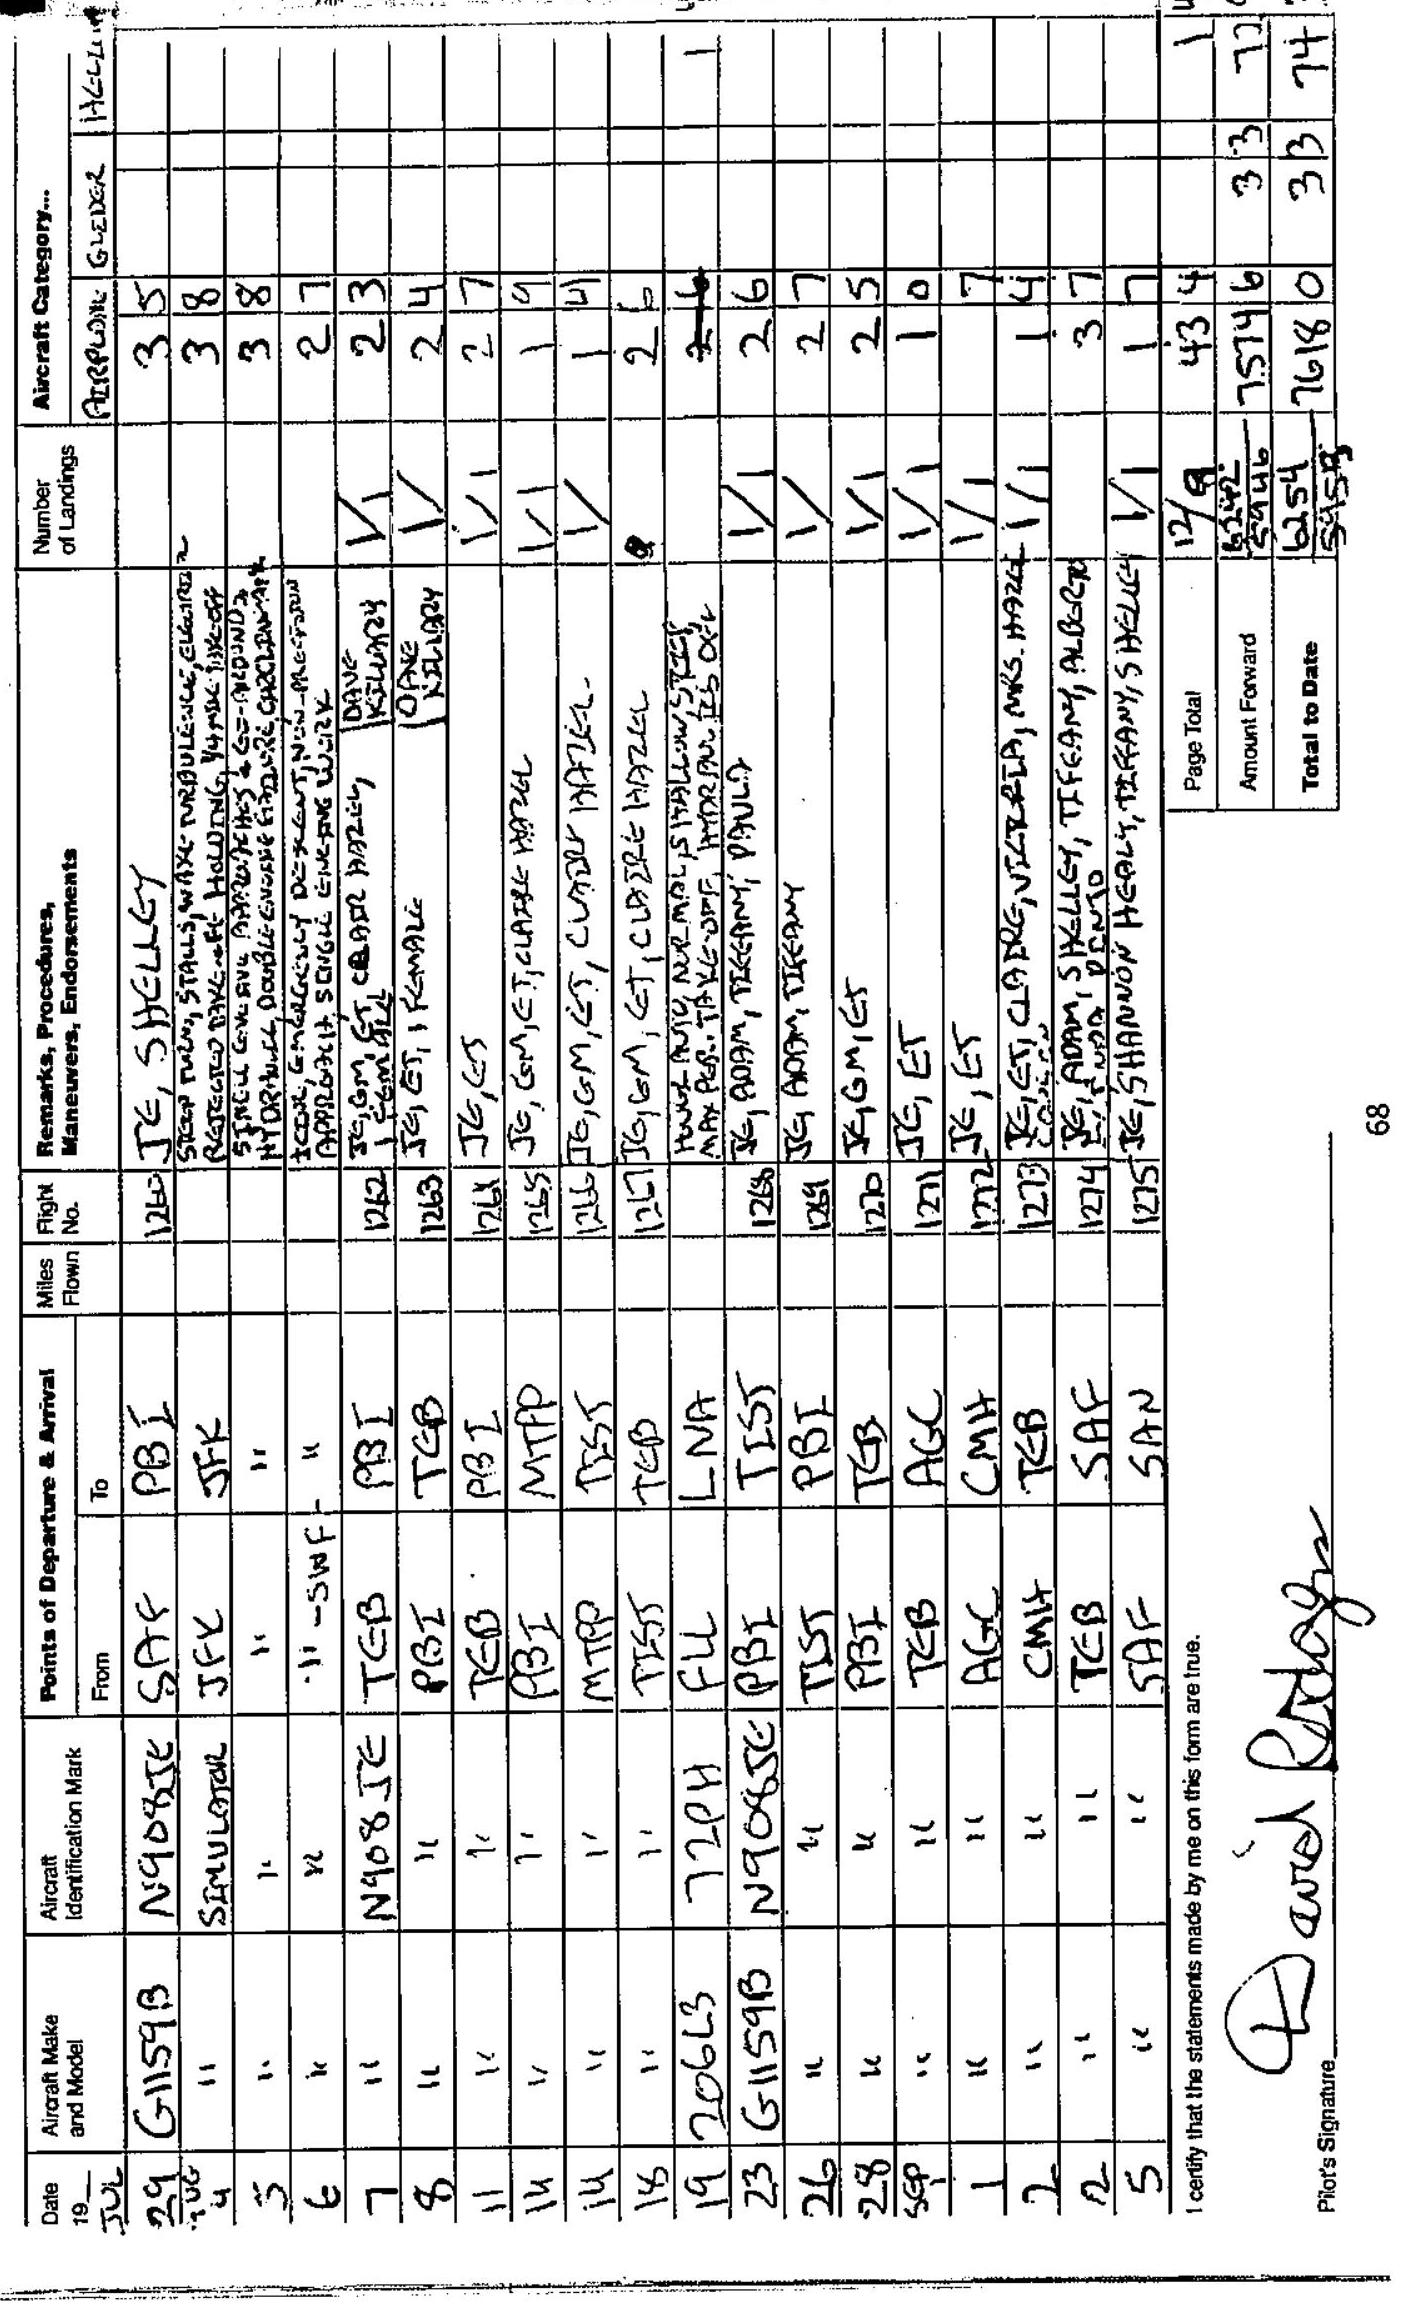 Date 19__ Aircraft Make and Model Aircraft Identification Mark Points of Departure & Arrival From To Miles Flown Flight No. Remarks, Procedures, Maneuvers, Endorsements Number of Landings Aircraft Category... AIRPLANE GLIDER
JUL
29 G1159B N908JE SAF PBI 1260 JE, SHELLEY 3 5
AUG
4 " SIMULATOR JFK JFK STEEP TURNS, STALLS, WAKE TURBULENCE, 3 8
REJECTED TAKE-OFF, HOLDING, 1/4 MILE TAKE-OFF
5 " " " " SINGLE ENGINE APPROACHES & GO-AROUND, 3 8
HYDRAULIC, DOUBLE ENGINE FAILURE,
6 " " " -SWF- " EMERGENCY DESCENT, NON-PRECISION 2 7
APPROACH, SINGLE ENGINE WORK
7 " N908JE TEB PBI 1262 JE, GM, ET, CLAIR HAZEL, DAVE KILLARY 1/1 2 3
1 FEMALE
8 " " PBI TEB 1263 JE, ET, 1 FEMALE KILLARY 1/ 2 4
11 " " TEB PBI 1264 JE, ET 1/1 2 7
14 " " PBI MTPP 1265 JE, GM, ET, CLAIRE HAZEL 1/1 1 9
14 " " MTPP TIST 1266 JE, GM, ET, HAZEL 1/ 1 4
18 " " TIST TEB 1267 JE, GM, ET, CLAIRE HAZEL 2 6
19 206L3 72PH FLL LNA NORMAL, SHALLOW, STEEP, 1
MAX PER. TAKE-OFF, HYDRAULICS OFF
23 G1159B N908JE PBI TIST 1268 JE, ADAM, TIFFANY, PAULA 1/1 2 6
26 " " TIST PBI 1269 JE, ADAM, TIFFANY 1/ 2 7
28 " " PBI TEB 1270 JE, GM, ET 1/1 2 5
SEP
1 " " TEB AGC 1271 JE, ET 1/1 1 0
1 " " AGC CMH 1272 JE, ET 1/1 7
2 " " CMH TEB 1273 JE, ET, CLAIRE, VICTORIA, MRS. HAZEL 1/1 1 4
2 " " TEB SAF 1274 JE, ADAM, SHELLEY, TIFFANY, ALBERTO 3 7
PINTO
5 " " SAF SAN 1275 JE, SHANNON HEALY, TIFFANY, SHELLEY 1/1 1 7
I certify that the statements made by me on this form are true.
Page Total 12/9 43 4 1
Amount Forward 6242 5946 7574 6 3 3
Total to Date 6254 7618 0 3 3 74
Pilot's Signature David Rodgers
68